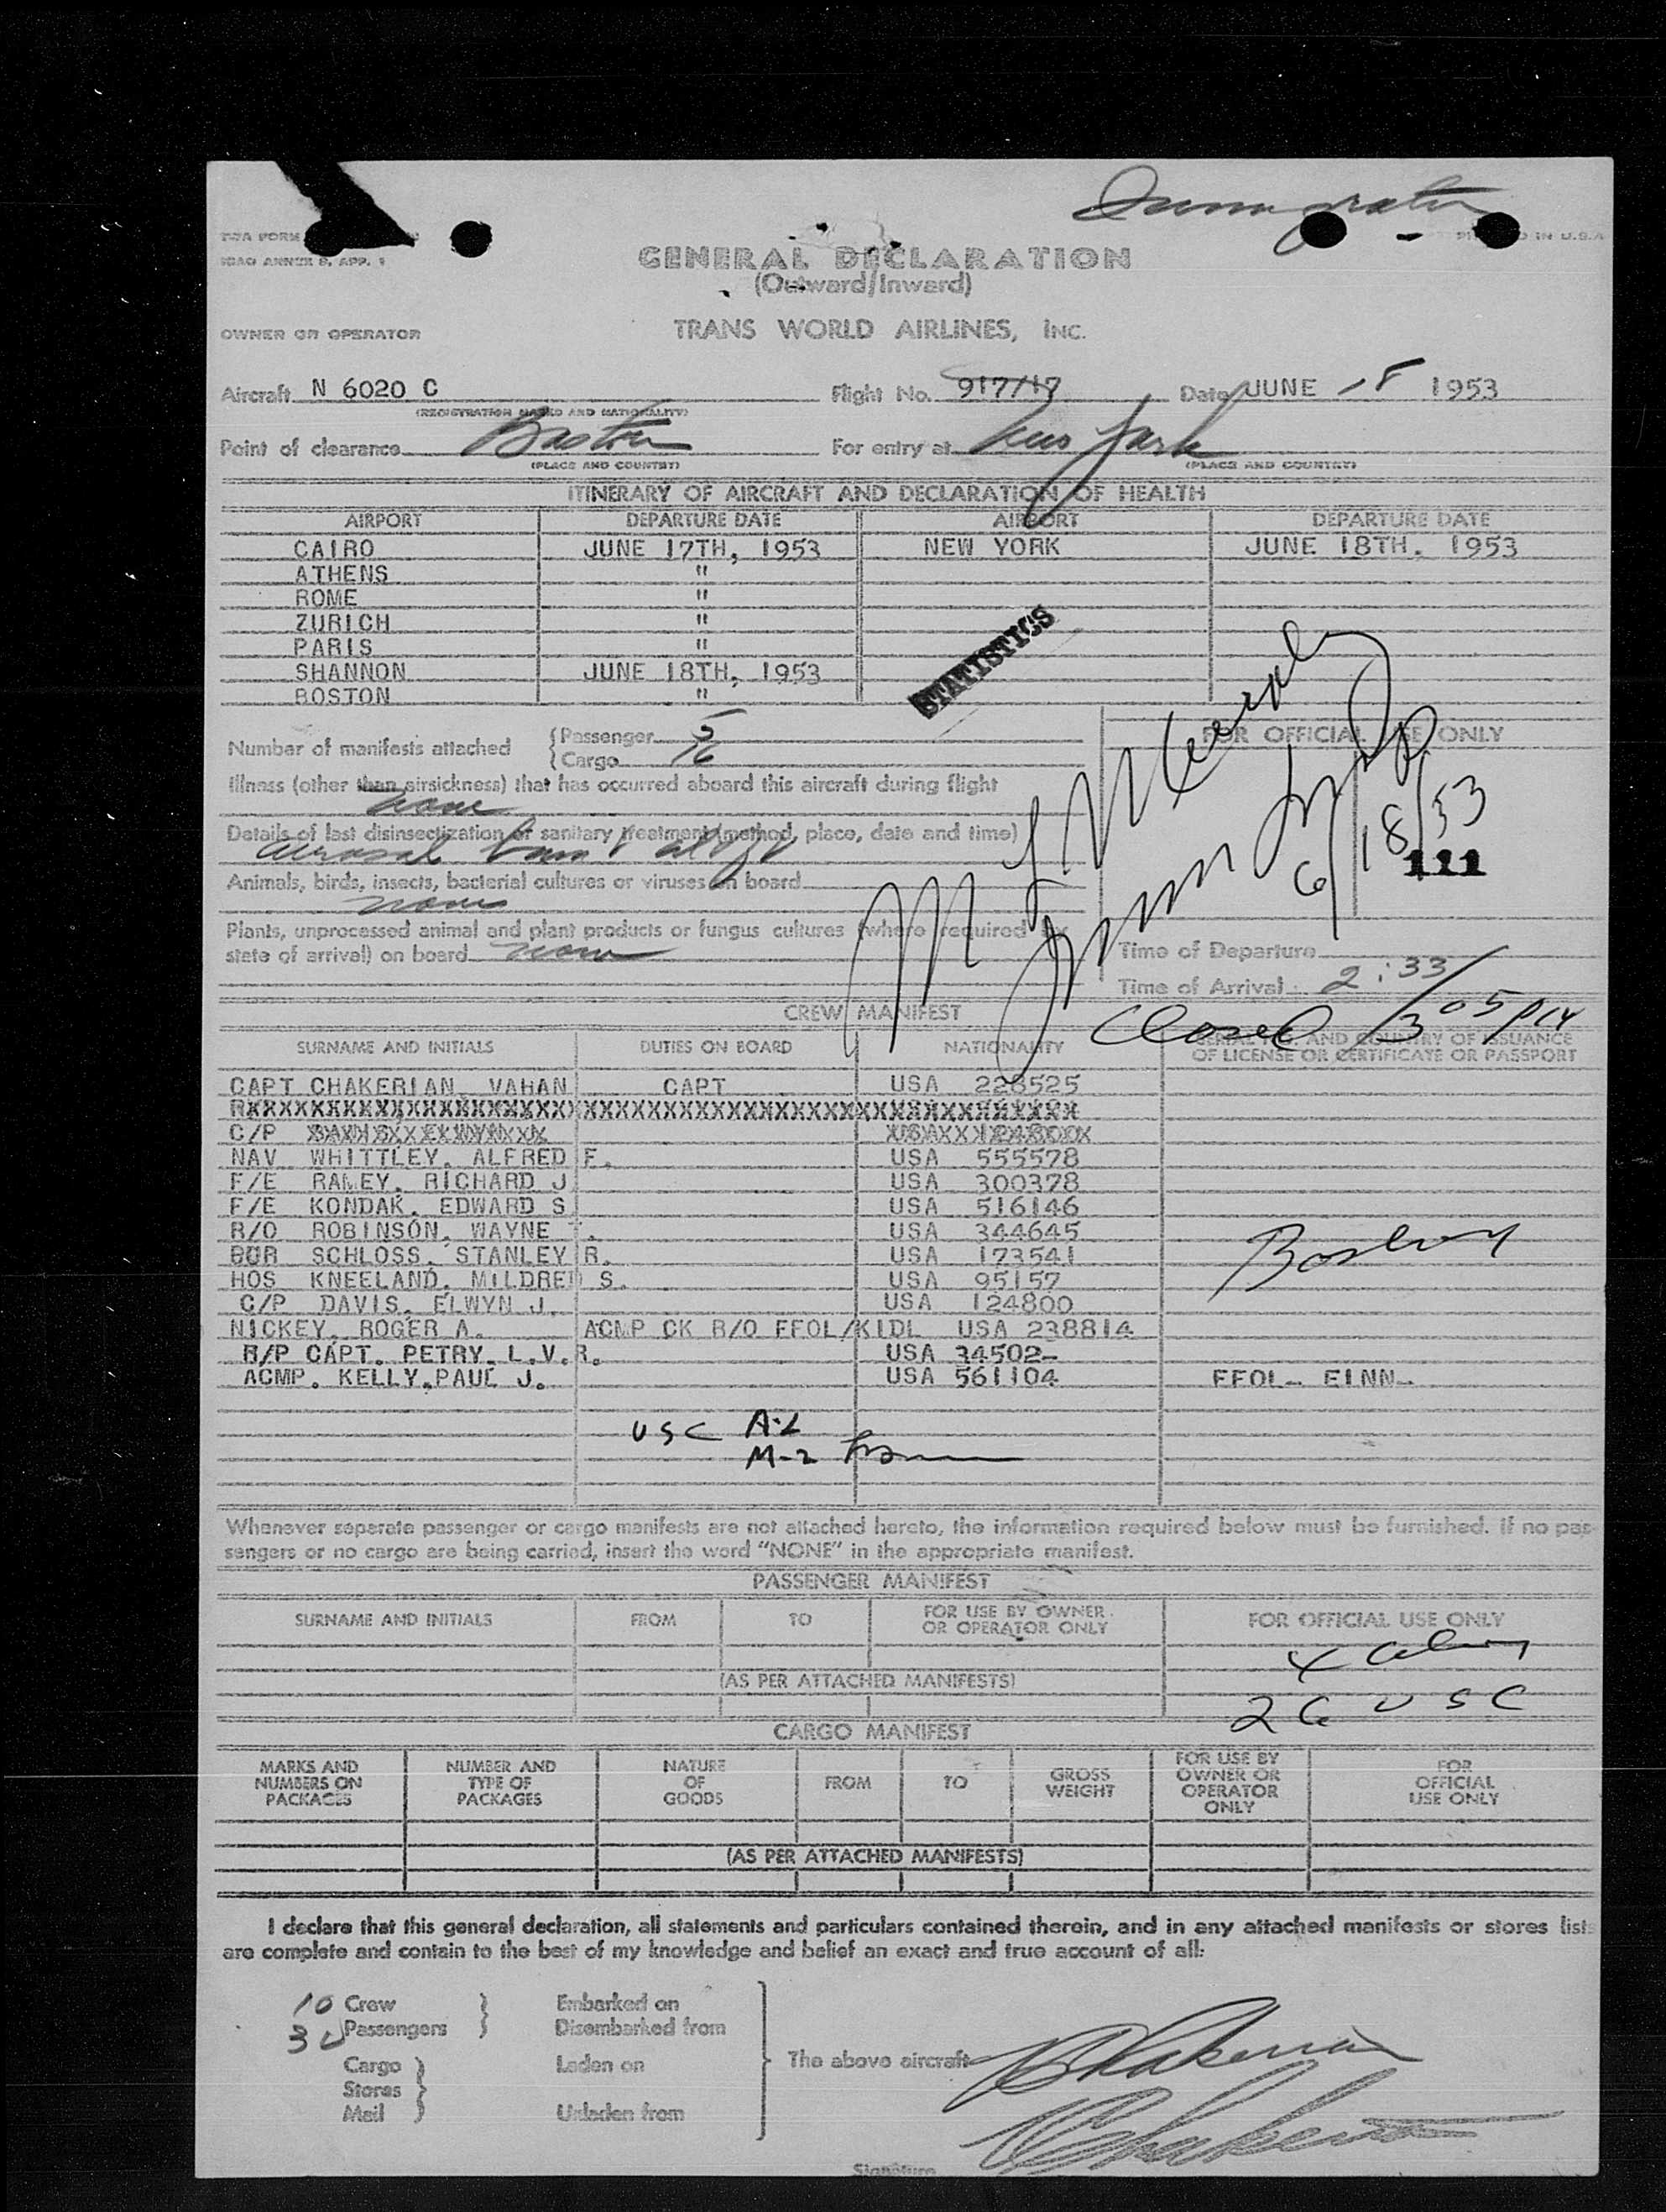 Immigration
TWA FORM
ICAO ANNEX 9, APP. 1
IN U.S.A.
GENERAL DECLARATION
(Outward/Inward)
OWNER OR OPERATOR TRANS WORLD AIRLINES, INC.
Aircraft N 6020 C Flight No. 917/17 Date JUNE 18 1953
(REGISTRATION MARKS AND NATIONALITY)
Point of clearance Boston For entry at New York
(PLACE AND COUNTRY) (PLACE AND COUNTRY)
ITINERARY OF AIRCRAFT AND DECLARATION OF HEALTH
AIRPORT DEPARTURE DATE AIRPORT DEPARTURE DATE
CAIRO JUNE 17TH, 1953 NEW YORK JUNE 18TH, 1953
ATHENS "
ROME "
ZURICH "
PARIS "
SHANNON JUNE 18TH, 1953
BOSTON "
STATISTICS
Number of manifests attached Passenger 5
Cargo 16
FOR OFFICIAL USE ONLY
Illness (other than airsickness) that has occurred aboard this aircraft during flight
none
Details of last disinsectization or sanitary treatment (method, place, date and time)
aerosol bomb
Animals, birds, insects, bacterial cultures or viruses on board
none
Plants, unprocessed animal and plant products or fungus cultures (where required by
state of arrival) on board none
6/18/53
111
Time of Departure
Time of Arrival 2:33
Closed 3 05 PM
CREW MANIFEST
SURNAME AND INITIALS DUTIES ON BOARD NATIONALITY SERIAL NO. AND COUNTRY OF ISSUANCE
OF LICENSE OR CERTIFICATE OR PASSPORT
CAPT CHAKERIAN, VAHAN CAPT USA 228525
C/P
NAV WHITTLEY, ALFRED F. USA 555578
F/E RAMEY, RICHARD J USA 300378
F/E KONDAK, EDWARD S USA 516146
R/O ROBINSON, WAYNE T. USA 344645
BUR SCHLOSS, STANLEY R. USA 173541
HOS KNEELAND, MILDRED S. USA 95157
C/P DAVIS, ELWYN J. USA 124800
NICKEY, ROGER A. ACMP CK R/O EFOL/KIDL USA 238814
R/P CAPT. PETRY, L.V.R. USA 34502-
ACMP. KELLY,PAUL J. USA 561104 EFOL- EINN-
Boston
USC A-2
M-2
Whenever separate passenger or cargo manifests are not attached hereto, the information required below must be furnished. If no pas-
sengers or no cargo are being carried, insert the word "NONE" in the appropriate manifest.
PASSENGER MANIFEST
SURNAME AND INITIALS FROM TO FOR USE BY OWNER OR OPERATOR ONLY FOR OFFICIAL USE ONLY
4
(AS PER ATTACHED MANIFESTS)
26 USC
CARGO MANIFEST
MARKS AND NUMBERS ON PACKAGES NUMBER AND TYPE OF PACKAGES NATURE OF GOODS FROM TO GROSS WEIGHT FOR USE BY OWNER OR OPERATOR ONLY FOR OFFICIAL USE ONLY
(AS PER ATTACHED MANIFESTS)
I declare that this general declaration, all statements and particulars contained therein, and in any attached manifests or stores lists
are complete and contain to the best of my knowledge and belief an exact and true account of all:
10 Crew Embarked on
30 Passengers Disembarked from
Cargo Laden on The above aircraft
Stores
Mail Unladen from
V Chakerian
V Chakerian
Signature